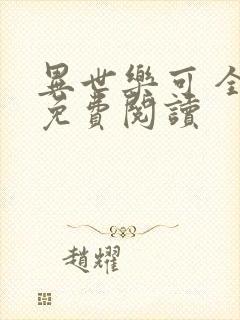 異世樂可 全
免費閱讀
趙耀